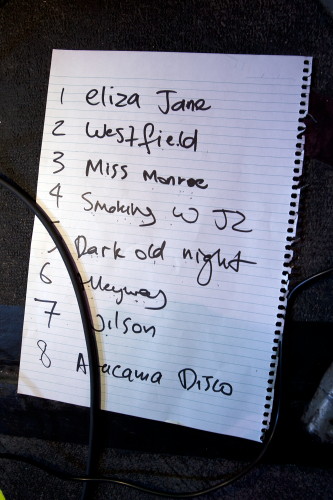 1 eliza Jane
2 Westfield
3 Miss Monroe
4 Smoking w JZ
5 Dark old night
6 Alleyway
7 Wilson
8 Atacama Disco